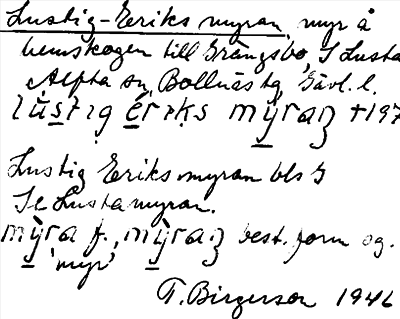 Lustig-Eriks myran, myr å
hemskogen till Grängsbo, S Lusta
Alfta sn, Bollnäs tg, Gävl. l.
lùstıg érıks mỳraɳ +197
Lustig Eriksmyran bls G
Se Lustamyran.
mỳra f., mỳraɳ best. form og.
'myr'
T. Birgerson 1946